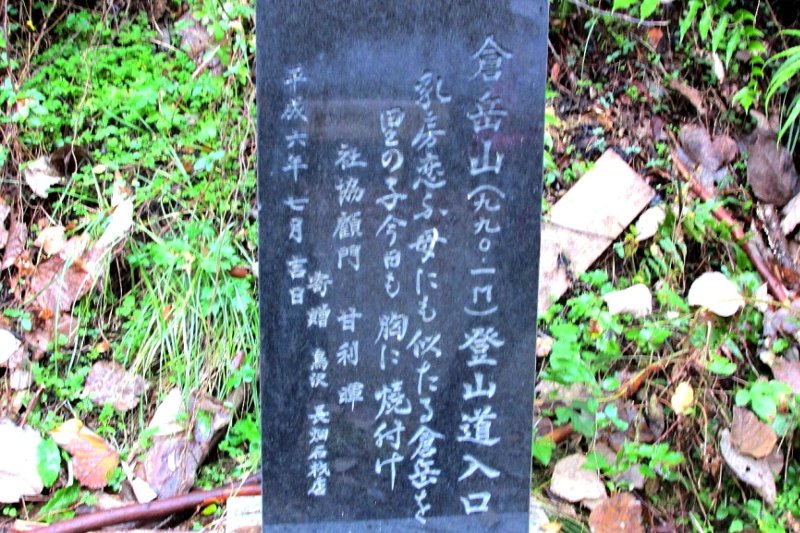 倉岳山(九九〇・一M)登山道入口
乳房恋ふ母にも似たる倉岳を
里の子今日も胸に焼付け
社協顧門 甘利暉
寄贈 鳥沢 長畑石材店
平成六年七月吉日